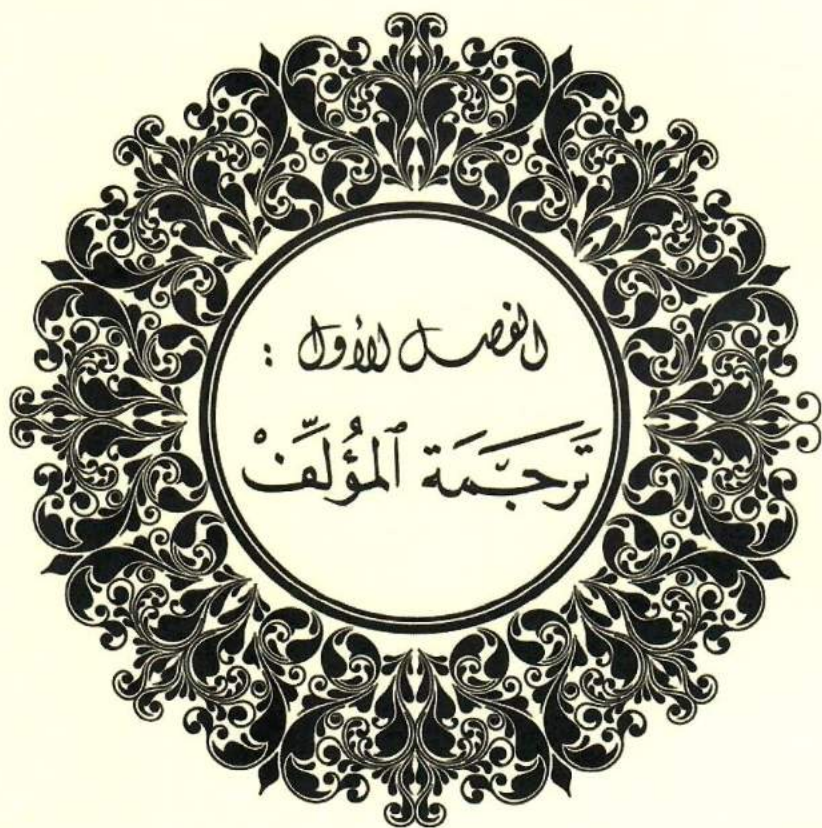 الفصل الأول :
تَرجَمَة ٱلمؤُلِّفْ